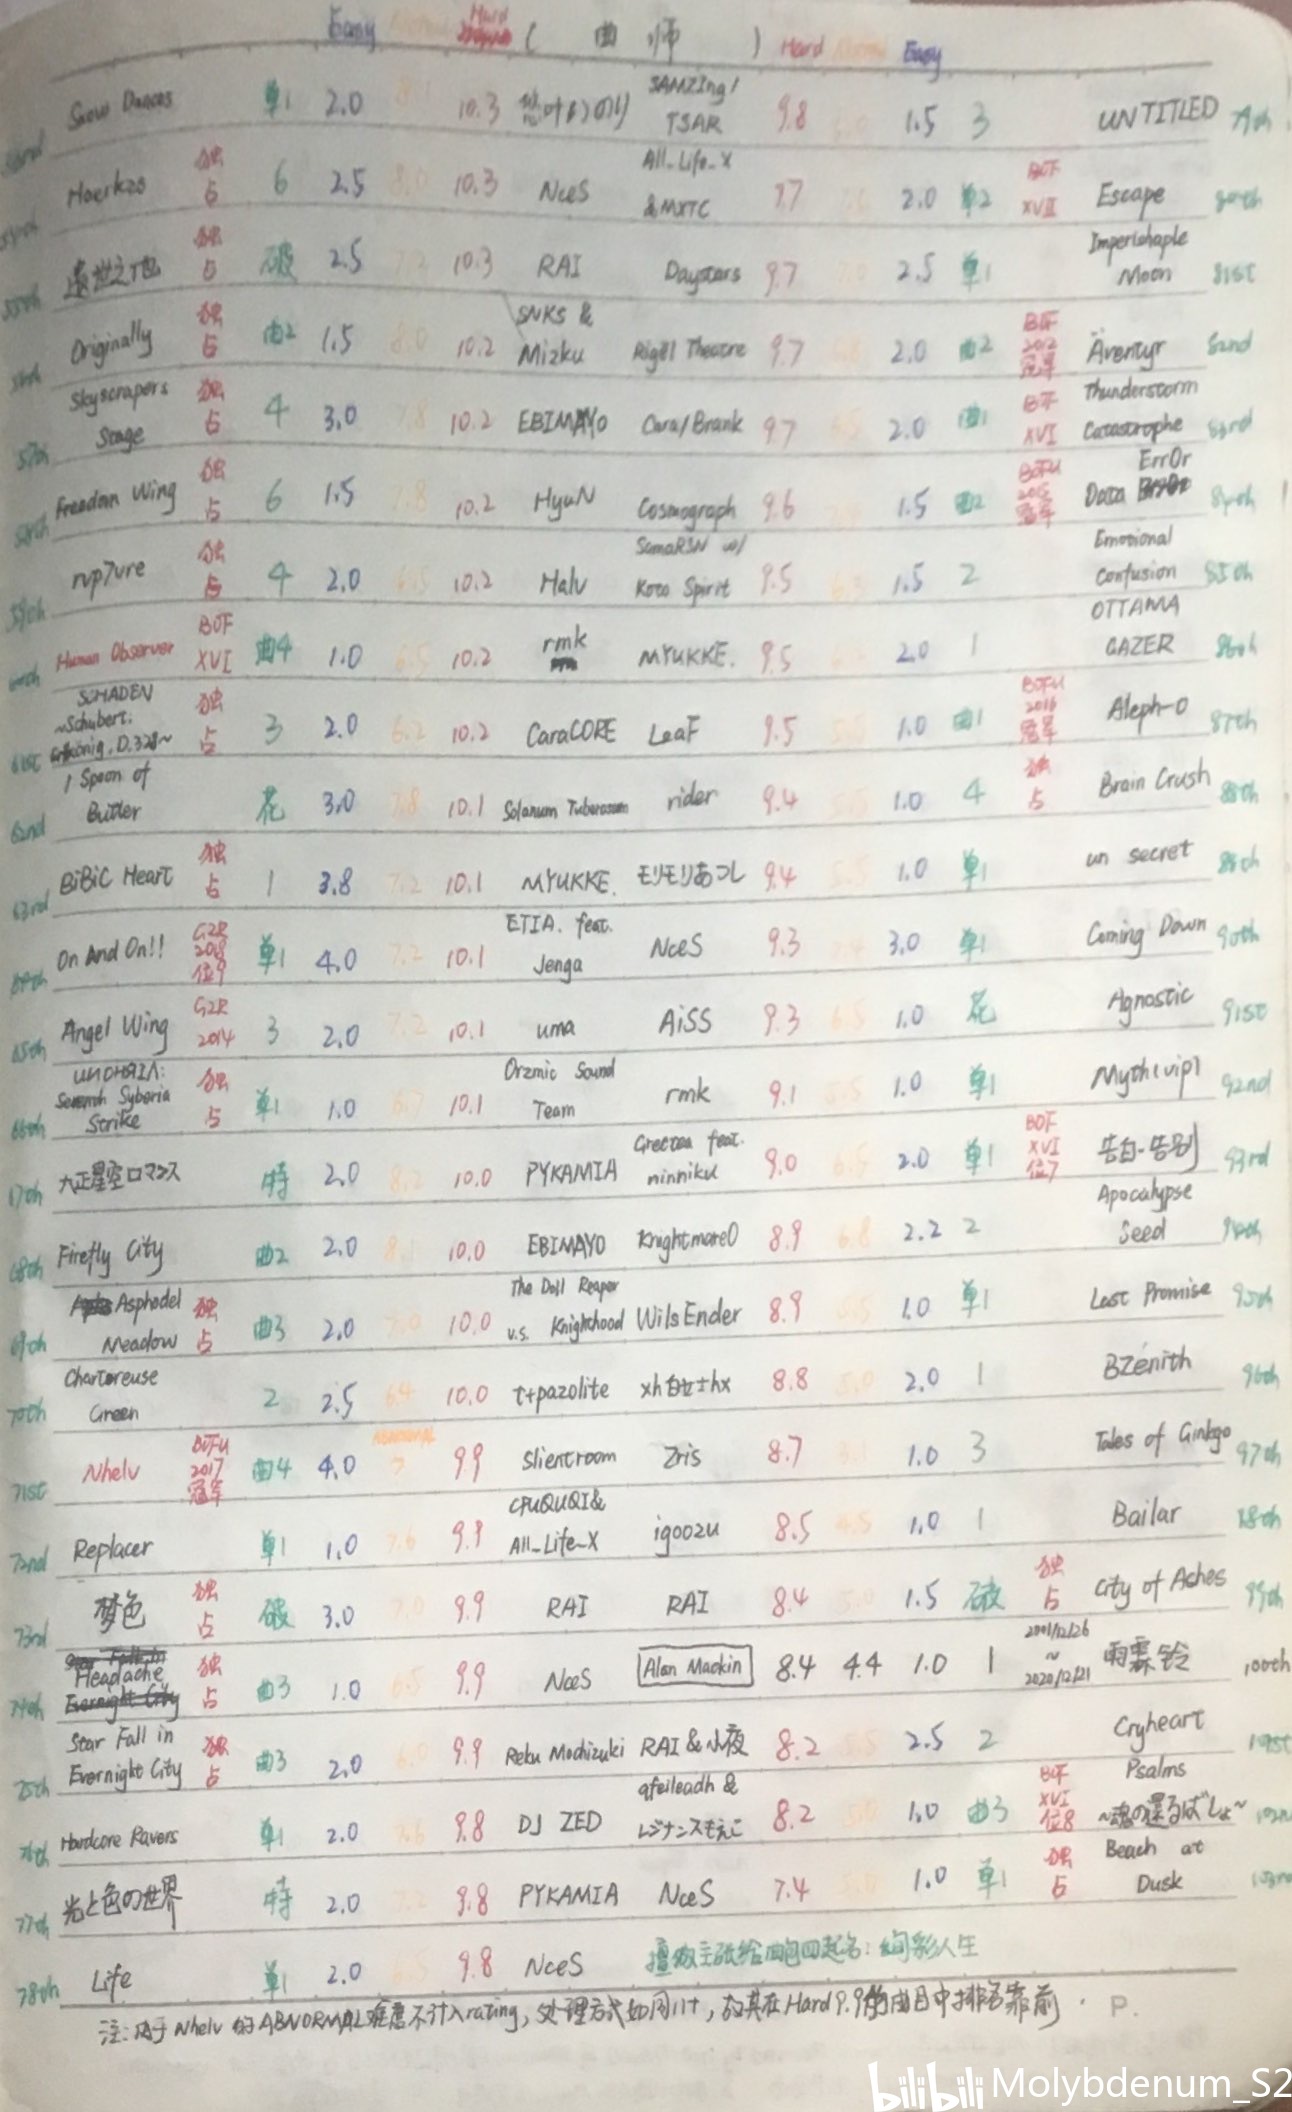 Easy Hard ( 曲师 ) Hard Easy
Snow Dances 单1 2.0 10.3 SAMZIng/ TSAR 9.8 1.5 3 UNTITLED 79th
Hoerkas 独占 6 2.5 8.0 10.3 NceS All_Life_X &MXTC 9.7 2.0 单2 BOF XVII Escape 80th
遗世之 独占 破 2.5 7.2 10.3 RAI Daystars 9.7 2.5 单1 Imperishaple Moon 81st
Originally 独占 曲2 1.5 8.0 10.2 SNKS & Mizku Rigël Theatre 9.7 2.0 曲2 BOF 2012 冠军 Äventyr 82nd
Skyscrapers Stage 独占 4 3.0 7.8 10.2 EBIMAYO Cara/Brank 9.7 2.0 曲1 BOF XVI Thunderstorm Catastrophe 83rd
58th Freedom Wing 独占 6 1.5 7.8 10.2 HyuN Cosmograph 9.6 1.5 曲2 BOFU 2015 冠军 Data Err0r 84th
59th rup7ure 独占 4 2.0 6.5 10.2 Halv SamaRSN w/ Koto Spirit 9.5 1.5 2 Emotional Confusion 85th
60th Human Observer BOF XVI 曲4 1.0 6.5 10.2 rmk MYUKKE. 9.5 2.0 1 OTTAMA GAZER 86th
61st SCHADEN ~Schubert: Erlkönig, D.328~ 独占 3 2.0 6.2 10.2 CaraCORE LeaF 9.5 1.0 曲1 BOFU 2016 冠军 Aleph-0 87th
62nd 1 Spoon of Butter 花 3.0 7.8 10.1 Solanum Tuberosum rider 9.4 1.0 4 独占 Brain Crush 88th
63rd BiBiC Heart 独占 1 3.8 7.2 10.1 MYUKKE. モリモリあつし 9.4 1.0 单1 un secret 89th
64th On And On!! G2R 2018 位9 单1 4.0 7.2 10.1 ETIA. feat. Jenga NceS 9.3 3.0 单1 Coming Down 90th
65th Angel Wing G2R 2014 3 2.0 7.2 10.1 uma AiSS 9.3 6.5 1.0 花 Agnostic 91st
66th Syberia Strike 独占 单1 1.0 6.7 10.1 Orzmic Sound Team rmk 9.1 1.0 单1 Myth(vip) 92nd
67th 大正星空ロマンス 特 2.0 8.2 10.0 PYKAMIA Grectea feat. minniku 9.0 6.5 2.0 单1 BOF XVI 位7 告白-告别 93rd
68th Firefly City 曲2 2.0 8.1 10.0 EBIMAYO Knightmare0 8.9 6.8 2.2 2 Apocalypse Seed 94th
69th Asphodel Meadow 独占 曲3 2.0 7.0 10.0 The Doll Reaper v.s. Knighthood WilsEnder 8.9 1.0 单1 Last Promise 95th
70th Chartoreuse Green 2 2.5 6.4 10.0 t+pazolite xh白zthx 8.8 2.0 1 BZenith 96th
71st Nhelv BOFU 2017 冠军 曲4 4.0 ABNORMAL ? 9.9 Slientroom Zris 8.7 3.1 1.0 3 Tales of Ginkgo 97th
72nd Replacer 单1 1.0 7.6 9.9 CPUQUQI& All_Life_X igoozu 8.5 4.5 1.0 1 Bailar 98th
73rd 梦色 独占 破 3.0 7.0 9.9 RAI RAI 8.4 1.5 破 独占 City of Ashes 99th
74th Headache 独占 曲3 1.0 6.5 9.9 NceS Alan Mackin 8.4 4.4 1.0 1 2001/12/26 ~ 2020/12/21 雨霖铃 100th
75th Star Fall in Evernight City 独占 曲3 2.0 6.0 9.9 Reku Mochizuki RAI&小夜 8.2 2.5 2 Cryheart 101st
76th Hardcore Ravers 单1 2.0 7.6 9.8 DJ ZED qfeileadh & レジナンスもえこ 8.2 1.0 曲3 BOF XVI 位8 Psalms ~魂の還るばしょ~ 102nd
77th 光と色の世界 特 2.0 7.2 9.8 PYKAMIA NceS 7.4 1.0 单1 独占 Beach at Dusk 103rd
78th Life 单1 2.0 6.5 9.8 NceS 擅做主张给曲包四起名：绚彩人生
注：由于Nhelv的ABNORMAL难度不计入rating，处理方式如同11+，故其在Hard9.9的曲目中排名靠前 . P.
bilibili Molybdenum_S2